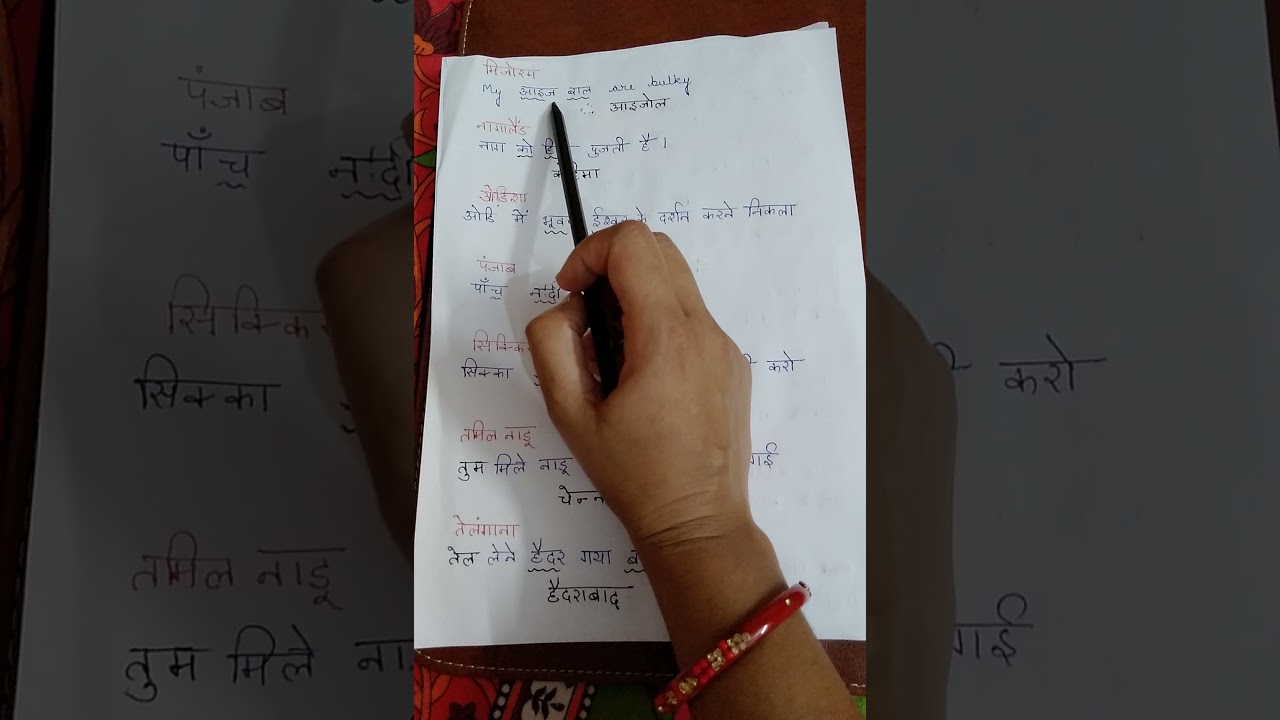 मिजोरम
My आइज बाल are bulky
∴ आइजोल
नागालैंड
नाग को पुजती है ।
ओडिशा
ओडि में ईश्वर के दर्शन करने निकला
पंजाब
पाँच
सिक्किम
सिक्का करो
तमिल नाडू
तुम मिले नाडू गई
तेलंगाना
तेल लेने हैदर गया
हैदराबाद